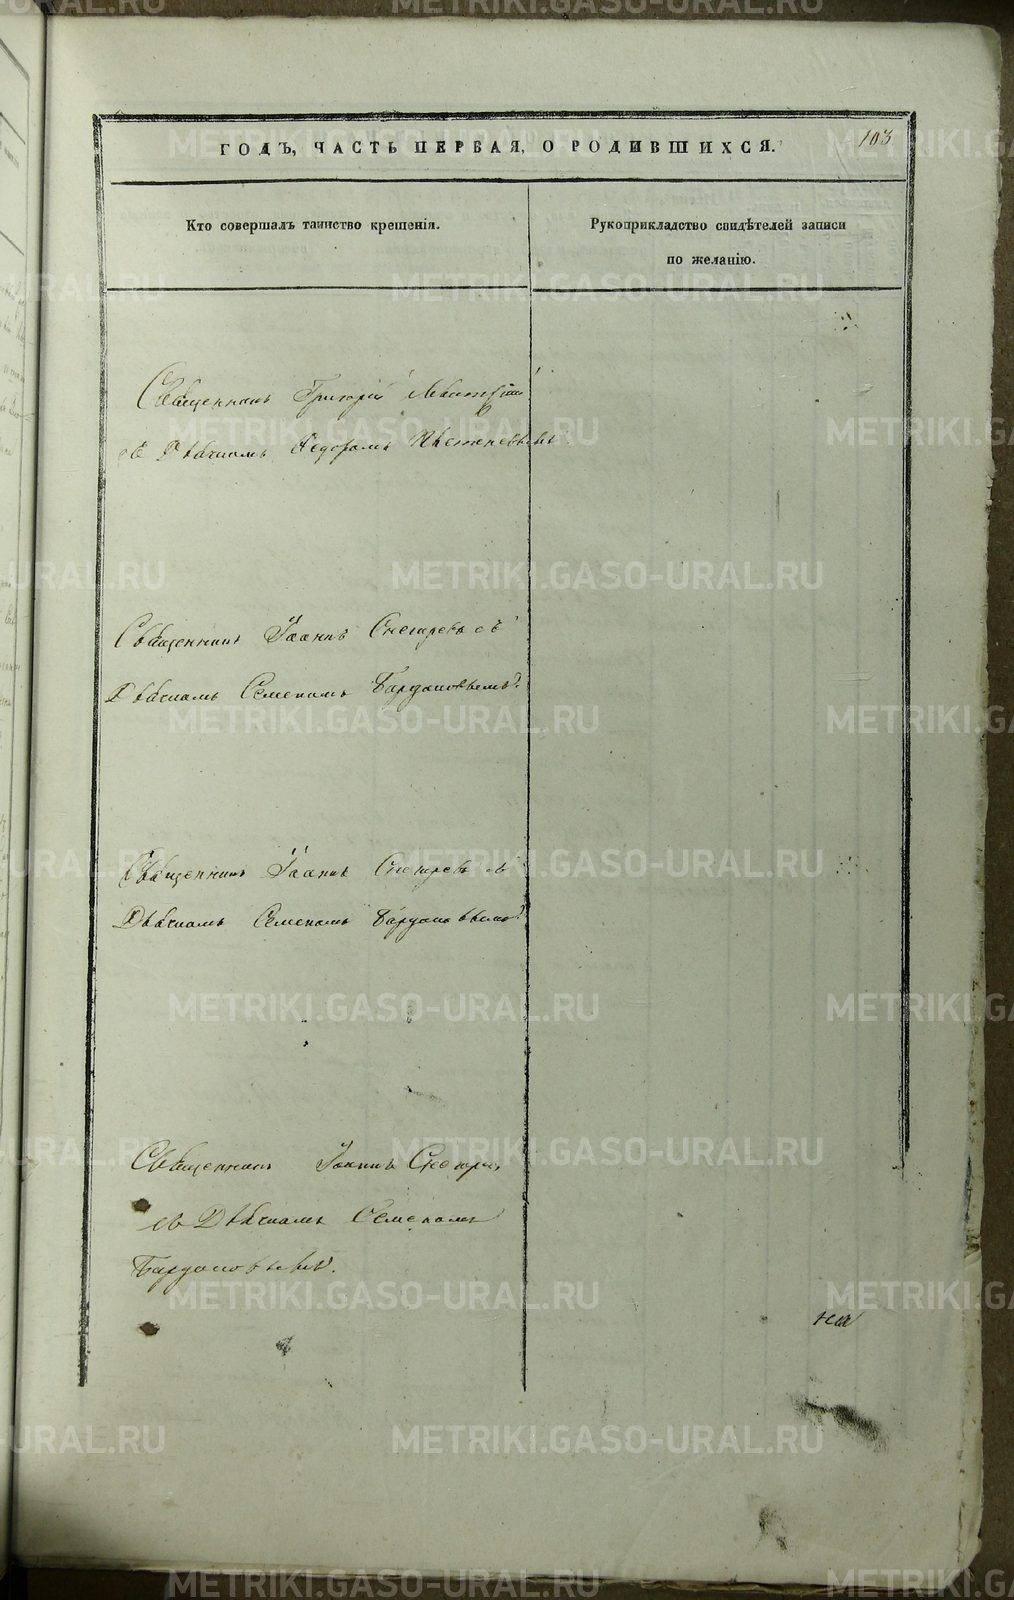 103
ГОДЪ, ЧАСТЬ ПЕРВАЯ, О РОДИВШИХСЯ.
Кто совершалъ таинство крещенія.
Рукоприкладство свидѣтелей записи
по желанію.
Священникъ Григорій
съ Дьячкомъ Федоромъ
Священникъ Іоаннъ Снегиревъ съ
Дьячкомъ Семеномъ
Священникъ Іоаннъ Снегиревъ съ
Дьячкомъ Семеномъ
Священникъ Іоаннъ
съ Дьячкомъ Семеномъ
METRIKI.GASO-URAL.RU